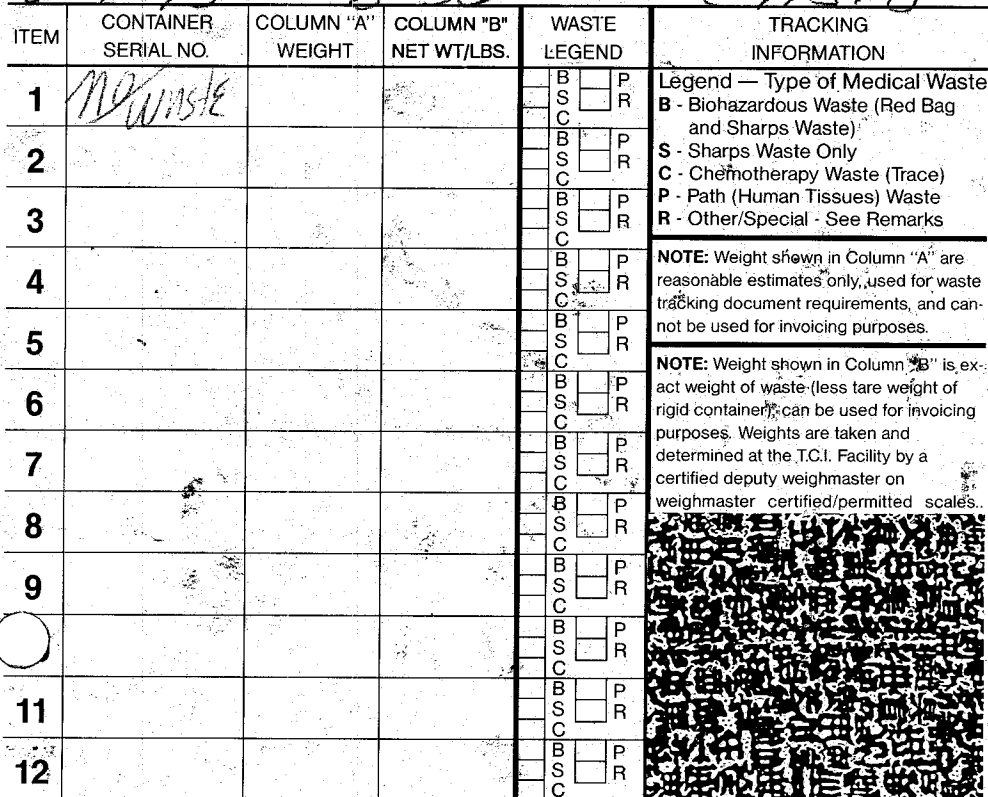 ITEM CONTAINER SERIAL NO. COLUMN "A" WEIGHT COLUMN "B" NET WT/LBS. WASTE LEGEND TRACKING INFORMATION
1 No Waste B S C P R
2 B S C P R
3 B S C P R
4 B S C P R
5 B S C P R
6 B S C P R
7 B S C P R
8 B S C P R
9 B S C P R
B S C P R
11 B S C P R
12 B S C P R
Legend — Type of Medical Waste
B - Biohazardous Waste (Red Bag
and Sharps Waste)
S - Sharps Waste Only
C - Chemotherapy Waste (Trace)
P - Path (Human Tissues) Waste
R - Other/Special - See Remarks
NOTE: Weight shown in Column "A" are
reasonable estimates only, used for waste
tracking document requirements, and can-
not be used for invoicing purposes.
NOTE: Weight shown in Column "B" is ex-
act weight of waste (less tare weight of
rigid container), can be used for invoicing
purposes. Weights are taken and
determined at the T.C.I. Facility by a
certified deputy weighmaster on
weighmaster certified/permitted scales..